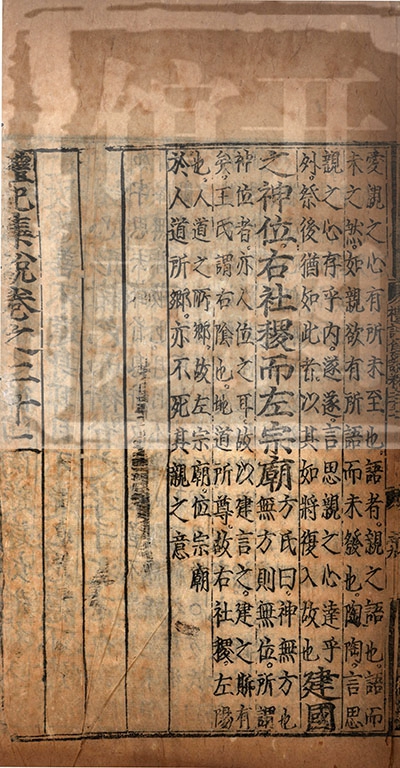 愛親之心有所未至也。語者。親之語也。語而
未之然。如親欲有所語而未發也。陶陶。言思
親之心存乎內。遂遂。言思親之心達乎
外。祭後猶如此者。以其如將復入故也 建國
之神位右社稷而左宗廟 方氏曰。神無方也
無方則無位。所謂
神位者。亦人位之耳。故以建言之。建之斯有
矣。王氏謂右陰也。地道所尊。故右社稷。左陽
也。人道之所鄉。故左宗廟。位宗廟
於人道所鄉。亦不死其親之意
禮記集說卷之三十二